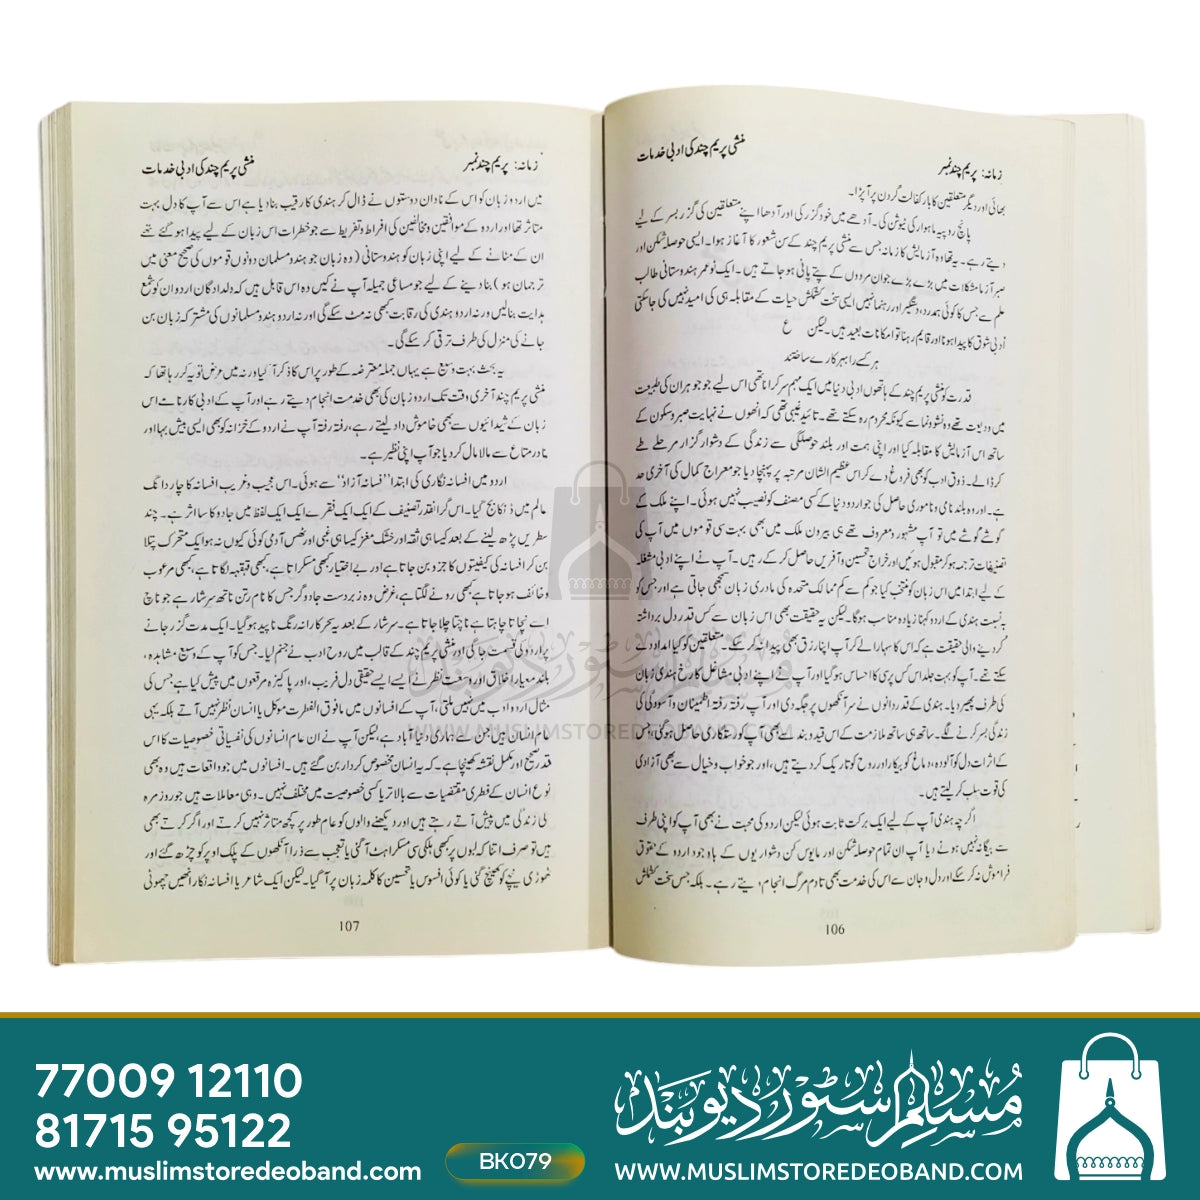 زمانہ: پریم چند نمبر
منشی پریم چند کی ادبی خدمات
بھائی اور دیگر متعلقین کا بار کفالت گردن پر آپڑا۔
پانچ روپیہ ماہوار کی ٹیوشن کی۔ آدھے میں خود گزر کی اور آدھا اپنے متعلقین کی گزر بسر کے لیے
دیتے رہے۔ یہ تھا وہ آزمایش کا زمانہ جس سے منشی پریم چند کے سن شعور کا آغاز ہوا۔ ایسی حوصلہ شکن اور
صبر آزما مشکلات میں بڑے بڑے جوان مردوں کے پتے پانی ہو جاتے ہیں۔ ایک نوعمر ہندوستانی طالب
علم سے جس کا کوئی ہمدرد، دستگیر اور رہنما نہیں ایسی سخت کشمکش حیات کے مقابلہ ہی کی امید نہیں کی جاسکتی
اُدبی شوق کا پیدا ہونا اور قایم رہنا تو امکانات بعید ہیں۔ لیکن ع
ہر کسے را بہر کارے ساختند
قدرت کو منشی پریم چند کے ہاتھوں ادبی دنیا میں ایک مہم سر کرانا تھی اس لیے جو جوہر ان کی طبیعت
میں ودیعت تھے وہ نشو و نما سے کیونکر محروم رہ سکتے تھے۔ تائید غیبی تھی کہ انھوں نے نہایت صبر و سکون کے
ساتھ اس آزمایش کا مقابلہ کیا اور اپنی ہمت اور بلند حوصلگی سے زندگی کے دشوار گزار مرحلے طے
کر ڈالے۔ ذوق ادب کو بھی فروغ دے کر اس عظیم الشان مرتبہ پر پہنچا دیا جو معراج کمال کی آخری حد
ہے۔ اور وہ بلند نامی و ناموری حاصل کی جو اردو دنیا کے کسی مصنف کو نصیب نہیں ہوئی۔ اپنے ملک کے
گوشے گوشے میں تو آپ مشہور و معروف تھے ہی بیرون ملک میں بھی بہت سی قوموں میں آپ کی
تصنیفات ترجمہ ہو کر مقبول ہوئیں اور خراج تحسین و آفریں حاصل کر کے رہیں۔ آپ نے اپنے ادبی مشغلہ
کے لیے ابتدا میں اس زبان کو منتخب کیا جو کم سے کم ممالک متحدہ کی مادری زبان سمجھی جاتی ہے اور جس کو
بہ نسبت ہندی کے اردو کہنا زیادہ مناسب ہوگا۔ لیکن یہ حقیقت بھی اس زبان سے کس قدر دل برداشتہ
کر دینے والی حقیقت ہے کہ اس کا سہارا لے کر آپ اپنا رزق بھی پیدا نہ کر سکے۔ متعلقین کو کیا امداد دے
سکتے تھے۔ آپ کو بہت جلد اس کس پرسی کا احساس ہو گیا اور آپ نے اپنے ادبی مشاغل کا رخ ہندی زبان
کی طرف پھیر دیا۔ ہندی کے قدردانوں نے سر آنکھوں پر جگہ دی اور آپ رفتہ رفتہ اطمینان و آسودگی کی
زندگی بسر کرنے لگے۔ ساتھ ہی ساتھ ملازمت کے اس قید و بند سے بھی آپ کو رستگاری حاصل ہو گئی، جس
کے اثرات دل کو آلودہ، دماغ کو بیکار اور روح کو تاریک کر دیتے ہیں، اور جو خواب و خیال سے بھی آزادی
کی قوت سلب کر لیتے ہیں۔
اگرچہ ہندی آپ کے لیے ایک برکت ثابت ہوئی لیکن اردو کی محبت نے بھی آپ کو اپنی طرف
سے بیگانہ نہیں ہونے دیا آپ ان تمام حوصلہ شکن اور مایوس کن دشواریوں کے باوجود اردو کے حقوق
فراموش نہ کر سکے اور دل و جان سے اس کی خدمت بھی تادم مرگ انجام دیتے رہے۔ بلکہ جس سخت کشمکش
106
زمانہ: پریم چند نمبر
منشی پریم چند کی ادبی خدمات
میں اردو زبان کو اس کے نادان دوستوں نے ڈال کر ہندی کا رقیب بنا دیا ہے اس سے آپ کا دل بہت
متاثر تھا اور اردو کے موافقین و مخالفین کی افراط و تفریط سے جو خطرات اس زبان کے لیے پیدا ہو گئے تھے
ان کے مٹانے کے لیے اپنی زبان کو ہندوستانی (وہ زبان جو ہندو مسلمان دونوں قوموں کی صحیح معنی میں
ترجمان ہو) بنا دینے کے لیے جو مساعی جمیلہ آپ نے کیں وہ اس قابل ہیں کہ دلدادگان اردو ان کو شمع
ہدایت بنالیں ورنہ اردو ہندی کی رقابت کبھی نہ مٹ سکے گی اور نہ اردو ہندو مسلمانوں کی مشترکہ زبان بن
جانے کی منزل کی طرف ترقی کر سکے گی۔
یہ بحث بہت وسیع ہے یہاں جملہ معترضہ کے طور پر اس کا ذکر آ گیا ورنہ میں عرض تو یہ کر رہا تھا کہ
منشی پریم چند آخری وقت تک اردو زبان کی بھی خدمت انجام دیتے رہے اور آپ کے ادبی کارنامے اس
زبان کے شیدائیوں سے بھی خاموش داد لیتے رہے، رفتہ رفتہ آپ نے اردو کے خزانہ کو بھی ایسی بیش بہا اور
نادر متاع سے مالا مال کر دیا جو آپ اپنی نظیر ہے۔
اردو میں افسانہ نگاری کی ابتدا "فسانہ آزاد" سے ہوئی۔ اس عجیب و غریب افسانہ کا چار دانگ
عالم میں ڈنکا بج گیا۔ اس گرانقدر تصنیف کے ایک ایک فقرے ایک ایک لفظ میں جادو کا سا اثر ہے۔ چند
سطریں پڑھ لینے کے بعد کیسا ہی ثقہ اور خشک مغز کیسا ہی غبی اور ٹھس آدمی کوئی کیوں نہ ہو ایک متحرک پتلا
بن کر افسانہ کی کیفیتوں کا جزو بن جاتا ہے اور بے اختیار کبھی مسکراتا ہے، کبھی قہقہہ لگاتا ہے، کبھی مرعوب
و خائف ہو جاتا ہے کبھی رونے لگتا ہے، غرض وہ زبردست جادوگر جس کا نام رتن ناتھ سرشار ہے جو ناچ
اسے نچانا چاہتا ہے ناچتا چلا جاتا ہے۔ سرشار کے بعد یہ سحر کارانہ رنگ ناپید ہو گیا۔ ایک مدت گزر جانے
پر اردو کی قسمت جاگی اور منشی پریم چند کے قالب میں روح ادب نے جنم لیا۔ جس کو آپ کے وسیع مشاہدہ،
بلند معیار اخلاق اور وسعت نظر نے ایسے ایسے حقیقی دل فریب، اور پاکیزہ مرقعوں میں پیش کیا ہے جس کی
مثال اردو ادب میں نہیں ملتی، آپ کے افسانوں میں مافوق الفطرت موکل یا انسان نظر نہیں آتے بلکہ یہی
عام انسان ہیں جن سے ہماری دنیا آباد ہے، لیکن آپ نے ان عام انسانوں کی نفسیاتی خصوصیات کا اس
قدر صحیح اور مکمل نقشہ کھینچا ہے۔ کہ یہ انسان مخصوص کردار بن گئے ہیں۔ افسانوں میں جو واقعات ہیں وہ بھی
نوع انسان کے فطری مقتضیات سے بالاتر یا کسی خصوصیت میں مختلف نہیں۔ وہی معاملات ہیں جو روز مرہ
کی زندگی میں پیش آتے رہتے ہیں اور دیکھنے والوں کو عام طور پر کچھ متاثر نہیں کرتے اور اگر کرتے بھی
ہیں تو صرف اتنا کہ لبوں پر بھی ہلکی سی مسکراہٹ آ گئی یا تعجب سے ذرا آنکھوں کے پلک اوپر کو چڑھ گئے اور
ٹھوڑی نیچے کو کھنچ گئی یا کوئی افسوس یا تحسین کا کلمہ زبان پر آ گیا۔ لیکن ایک شاعر یا افسانہ نگار انھیں چھوٹی
107
مسلم سٹور دیوبند
WWW.MUSLIMSTOREDEOBAND.COM
77009 12110
81715 95122
www.muslimstoredeoband.com
BK079
مسلم سٹور دیوبند
WWW.MUSLIMSTOREDEOBAND.COM